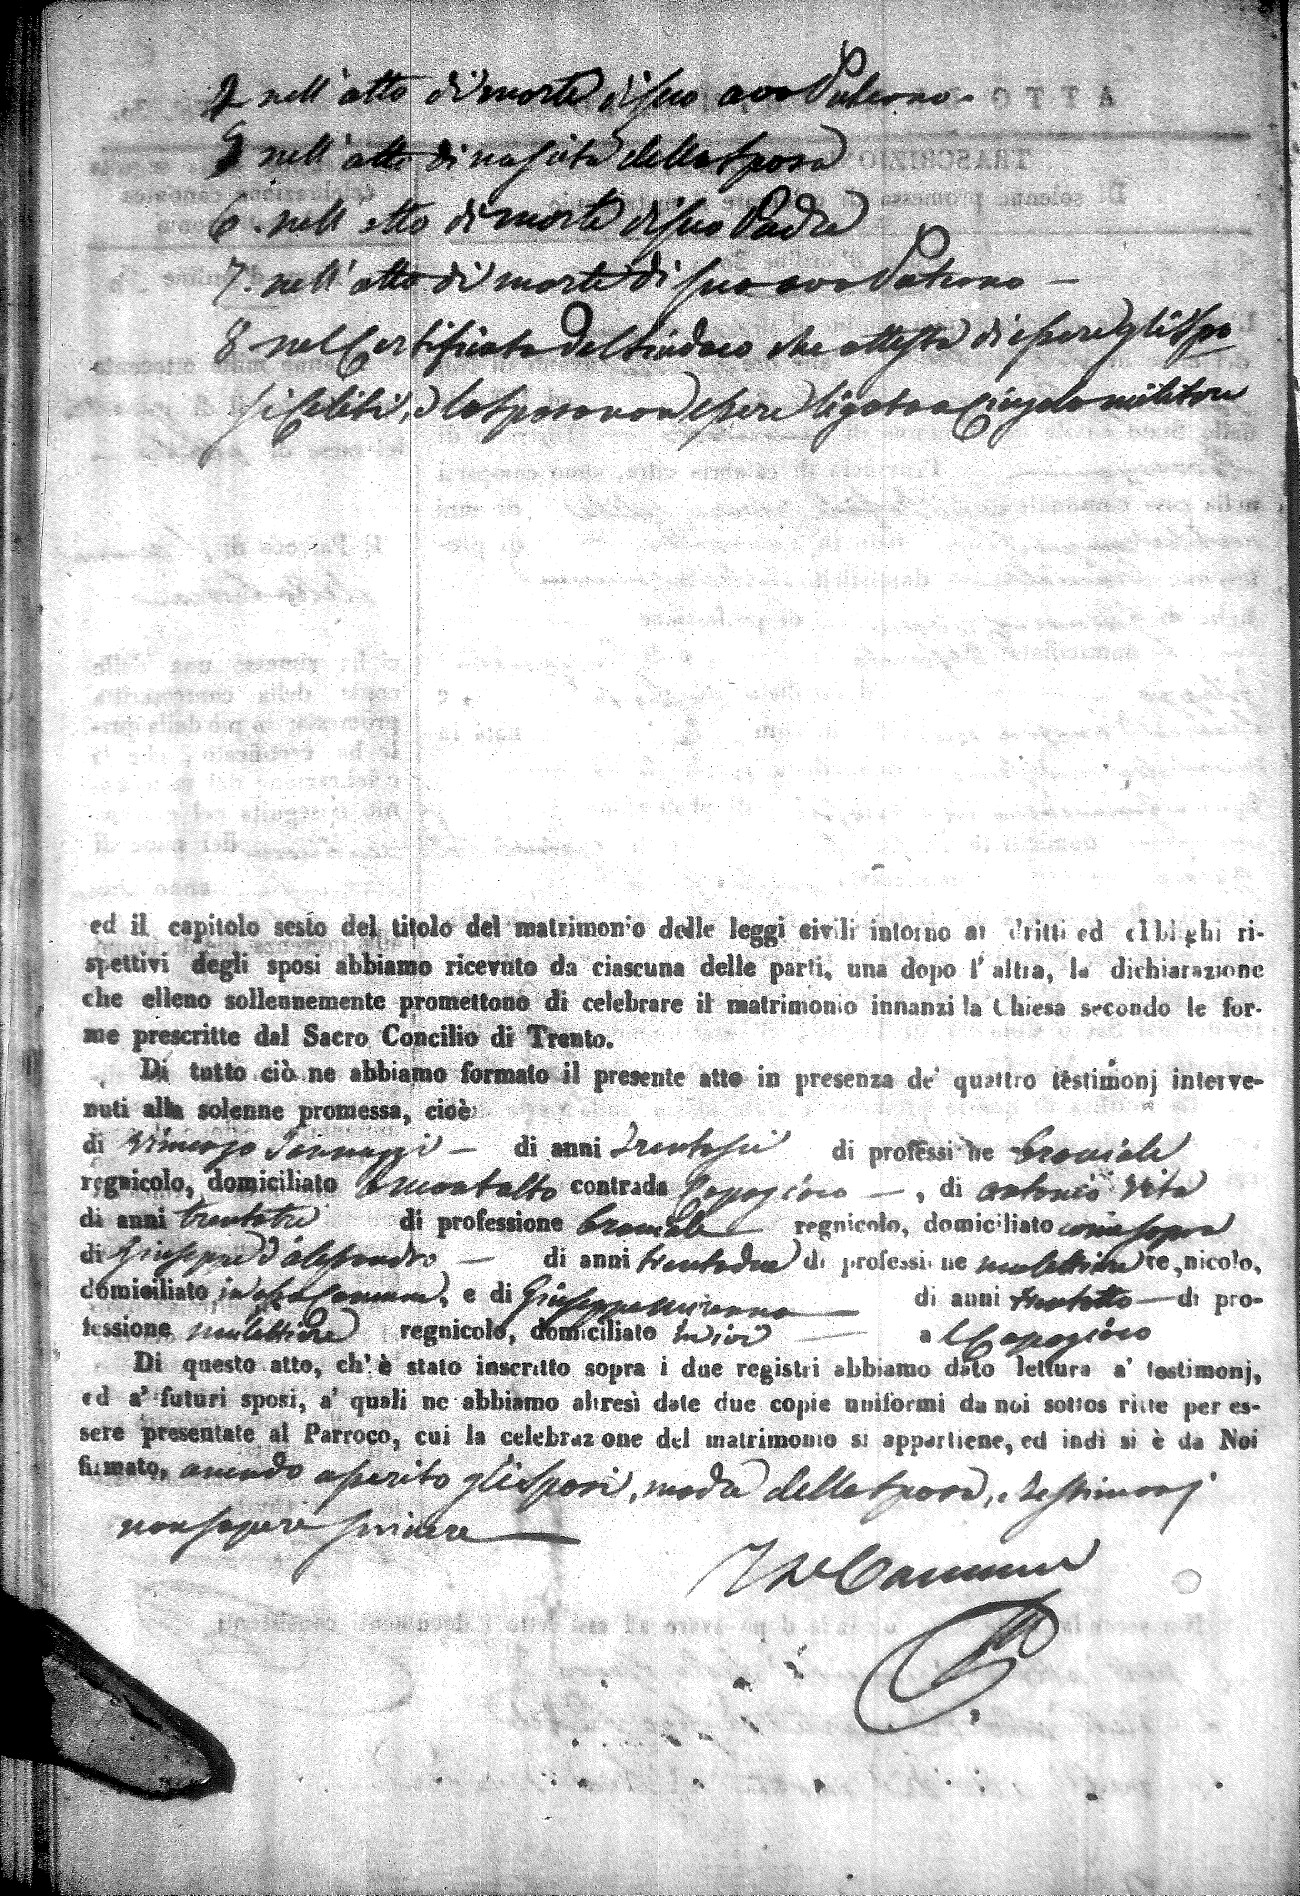 4 nell'atto di morte di suo avo Paterno.
5 nell'atto di nascita della sposa
6. nell'atto di morte di suo Padre
7. nell'atto di morte di suo avo Paterno —
8 nel Certificato del Sindaco che attesta di essere gli spo
si celibi, e la sposa non essere ligata a Cingolo militare
ed il capitolo sesto del titolo del matrimonio delle leggi civili intorno ai dritti ed obblighi ri-
spettivi degli sposi abbiamo ricevuto da ciascuna delle parti, una dopo l'altra, la dichiarazione
che elleno sollennemente promettono di celebrare il matrimonio innanzi la Chiesa secondo le for-
me prescritte dal Sacro Concilio di Trento.
Di tutto ciò ne abbiamo formato il presente atto in presenza de' quattro testimonj interve-
nuti alla solenne promessa, cioè:
di Vincenzo Iannuzzi — di anni trentasei di professione bracciale
regnicolo, domiciliato a Montalto contrada Capogioco —, di Antonio Vita
di anni trentatre di professione bracciale regnicolo, domiciliato come sopra
di Giuseppe d'Alessandro — di anni trentadue di professione mulattiere regnicolo,
domiciliato in essa Comune, e di Giuseppe Miranno — di anni trentotto — di pro-
fessione mulattiere regnicolo, domiciliato in ivi — al Capogioco
Di questo atto, ch'è stato inscritto sopra i due registri abbiamo dato lettura a' testimonj,
ed a' futuri sposi, a' quali ne abbiamo altresì date due copie uniformi da noi sottoscritte per es-
sere presentate al Parroco, cui la celebrazione del matrimonio si appartiene, ed indi si è da Noi
firmato, avendo asserito gli sposi, madre della sposa, e testimonj
non sapere scrivere —